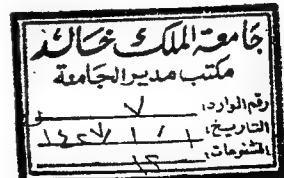 جامعة الملك خالد
مكتب مدير الجامعة
رقم الوارد: ٧
التاريخ: ١ / ١ / ١٤٢٧
المشفوعات: ١٢